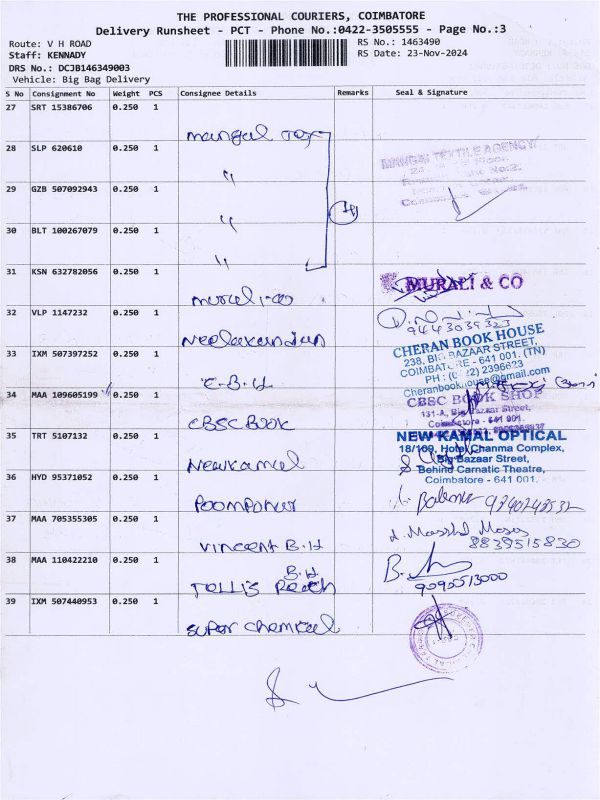 THE PROFESSIONAL COURIERS, COIMBATORE
Delivery Runsheet - PCT - Phone No.:0422-3505555 - Page No.:3
Route: V H ROAD
RS No.: 1463490
Staff: KENNADY
RS Date: 23-Nov-2024
DRS No.: DCJB146349003
Vehicle: Big Bag Delivery
S No Consignment No Weight PCS Consignee Details Remarks Seal & Signature
27 SRT 15386706 0.250 1
Mangal Tex
28 SLP 620610 0.250 1
MANGAL TEXTILE AGENCY
"
29 GZB 507092943 0.250 1
"
30 BLT 100267079 0.250 1
"
31 KSN 632782056 0.250 1
MURALI & CO
murali-co
32 VLP 1147232 0.250 1
9443039323
Neelaxandan
33 IXM 507397252 0.250 1
CHERAN BOOK HOUSE
238, BIG BAZAAR STREET,
COIMBATORE - 641 001. (TN)
PH : (0422) 2396623
Cheranbookhouse@gmail.com
C.B.H
34 MAA 109605199 0.250 1
CBSC BOOK SHOP
131-A, Big Bazaar Street,
Coimbatore - 641 001.
CBSC BOOK
35 TRT 5107132 0.250 1
NEW KAMAL OPTICAL
18/109, Hotel Channma Complex,
Big Bazaar Street,
Behind Carnatic Theatre,
Coimbatore - 641 001.
Newkamal
36 HYD 95371052 0.250 1
9240243532
Poompuhar
37 MAA 705355305 0.250 1
8839515830
Vincent B.H
38 MAA 110422210 0.250 1
B.H
9090513000
39 IXM 507440953 0.250 1
super chemical